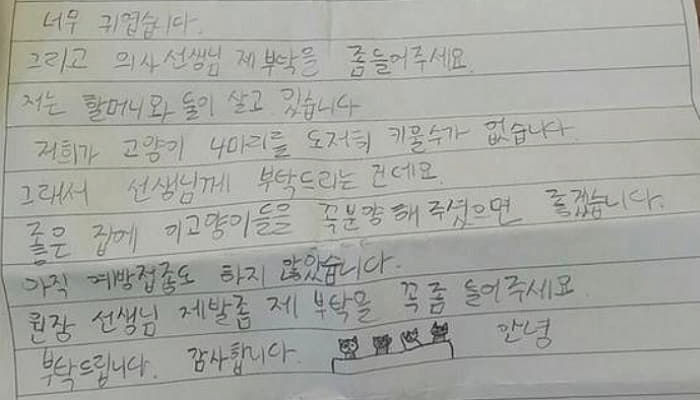 너무 귀엽습니다.
그리고 의사선생님 제부탁을 좀들어주세요.
저는 할머니와 둘이 살고 있습니다
저희가 고양이 4마리를 도저히 키울수가 없습니다.
그래서 선생님께 부탁드리는 건데요.
좋은 집에 이고양이들을 꼭분양해주셨으면 좋겠습니다.
아직 예방접종도 하지 않았습니다.
원장 선생님 제발좀 제 부탁을 꼭좀 들어주세요.
부탁드립니다. 감사합니다. 안녕